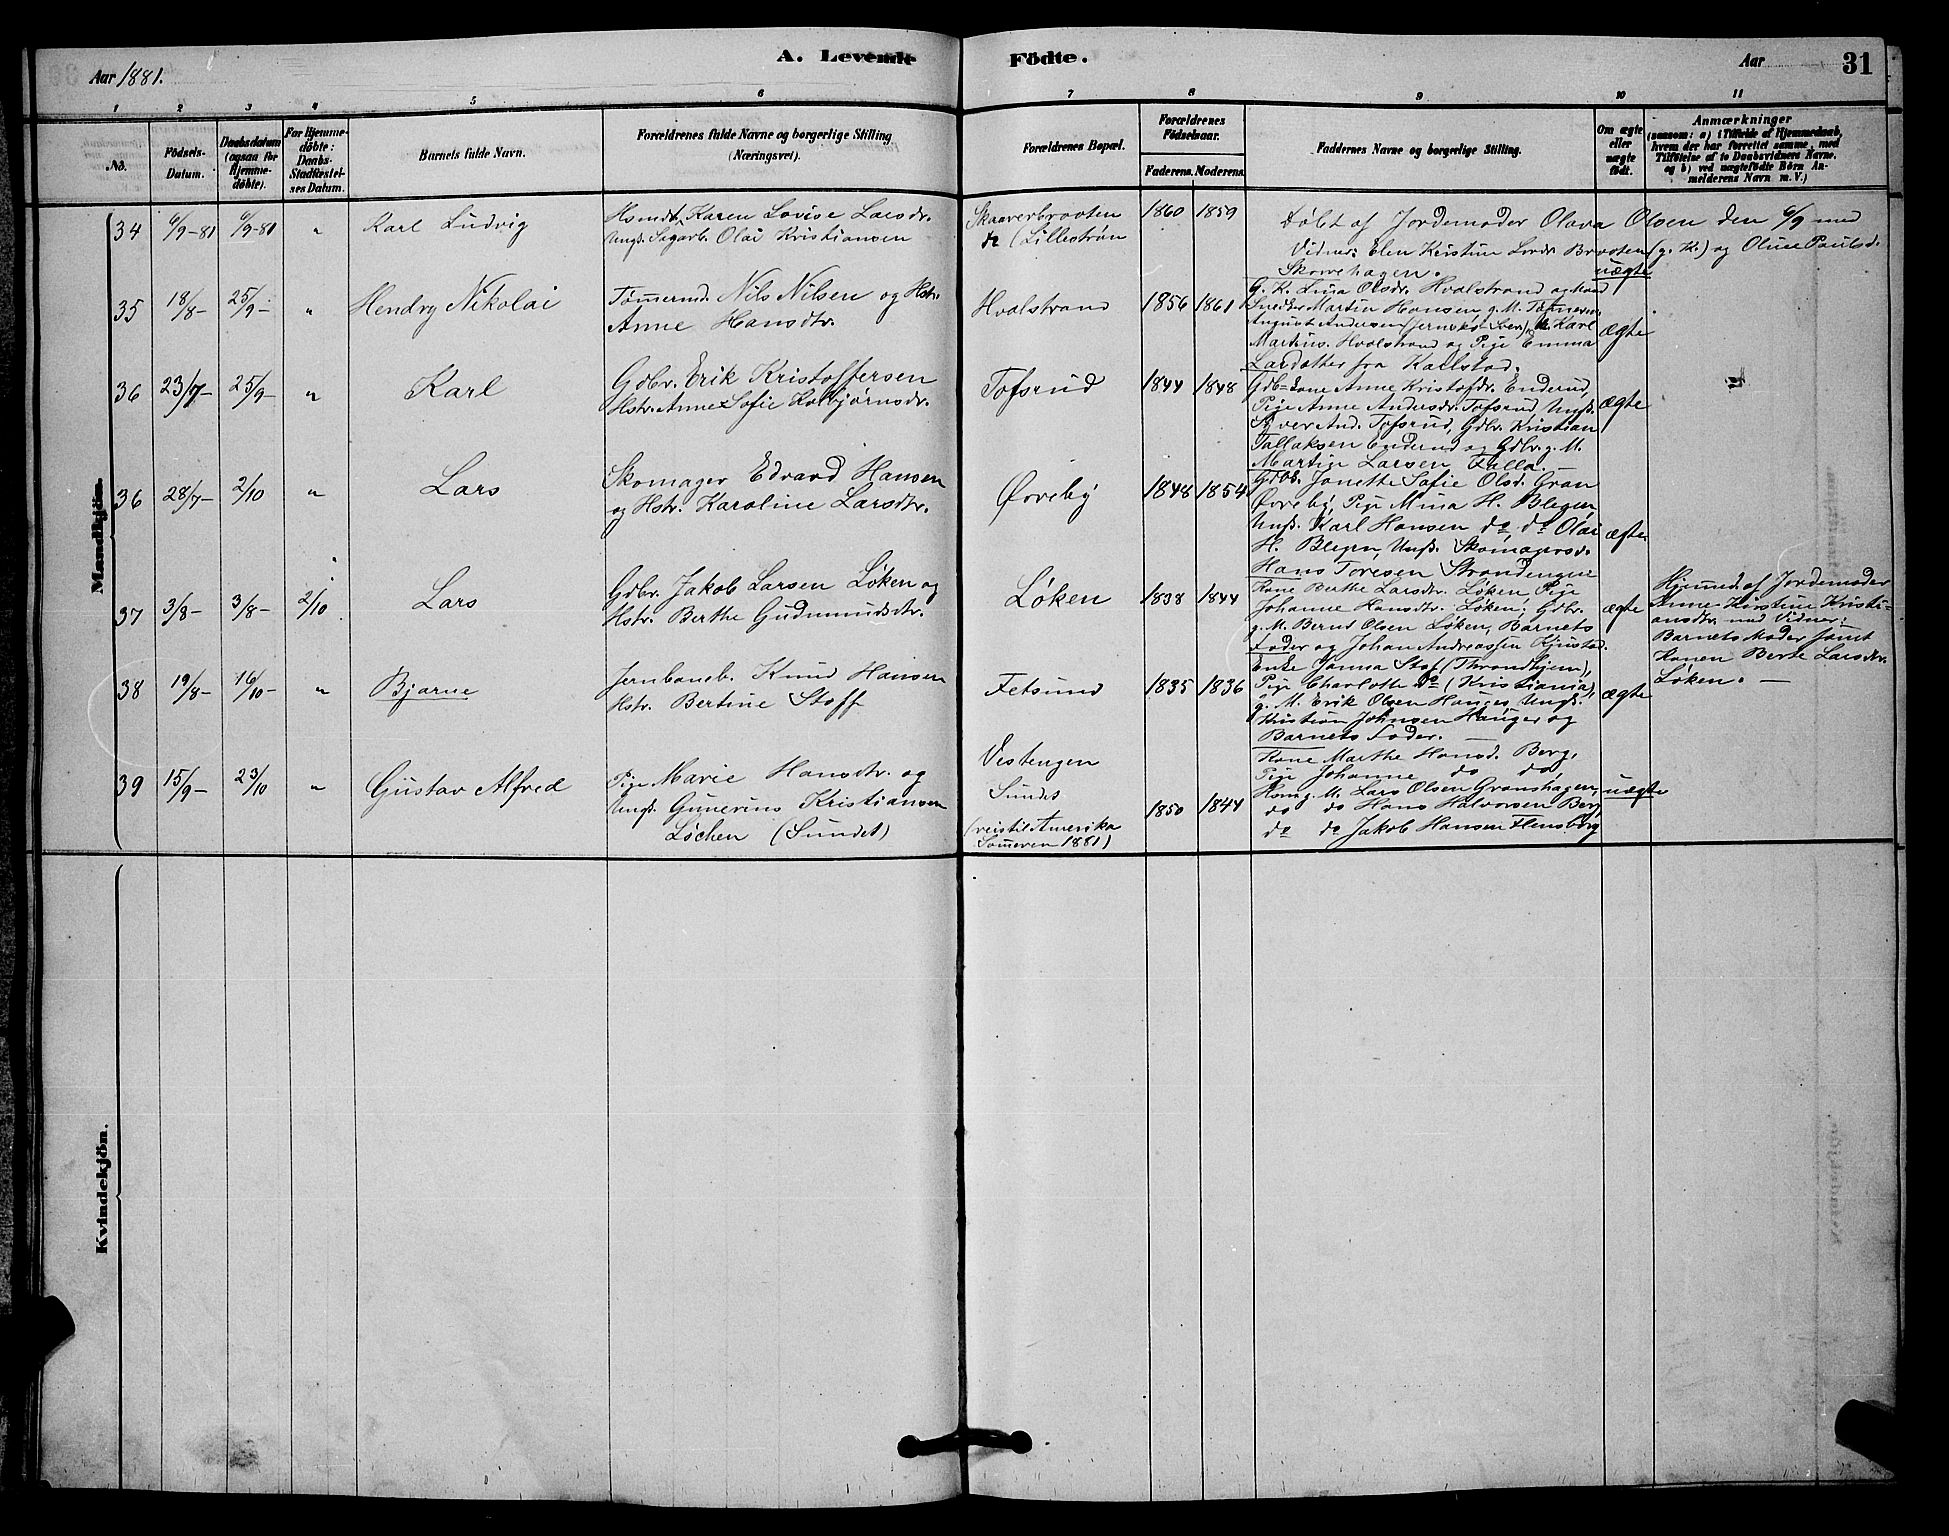 Aar 1881.
A. Levende Födte.
Aar
31
1 2 3 4 5 6 7 8 9 10 11
No.
Födsels-
Datum.
Daabsdatum
(ogsaa for
Hjemme-
döbte).
For Hjemme-
döbte:
Daabs-
Stadfæstel-
ses Datum.
Barnets fulde Navn.
Forældrenes fulde Navne og borgerlige Stilling
(Næringsvei).
Forældrenes Bopæl.
Forældrenes
Födselsaar.
Faderens. Moderens.
Faddernes Navne og borgerlige Stilling.
Om ægte
eller
uægte
födt.
Anmærkninger
(saasom: a) i Tilfælde af Hjemmedaab,
hvem der har forrettet samme, med
Tilföielse af to Daabsvidners Navne,
og b) ved uægtefödte Börn An-
melderens Navn m. V.)
Mandkjön.
34 6/9-81 6/9-81 " Karl Ludvig
Hsmdt. Karen Lovise Larsdr.
Ungk. Sagarb. Olai Kristiansen
Skaarerbraaten
(Lillestrøm
1860 1859
Døbt af Jordemoder Olava Olsen den 6/9 med
Vidner: Elen Kristine Braaten (g. K.) og Oline Paulsd.
Skovehagen.
uægte
35 18/8- 25/9- " Hendry Nikolai
Tømermd. Nils Nilsen og Hstr.
Anne Hansdtr.
Hvalstrand
1856 1861
G. K. Lina Olsdr. Hvalstrand
Snedker Martin Hansen, g. M. Tømerm.
August Andersen Karl
Martius. Hvalstrand og Pige Emma
Larsdatter fra Kallstad.
ægte
36 23/7- 25/9- " Karl
Gdbr. Erik Kristoffersen
Hstr. Anne Sofie Kolbjørnsdr.
Tofsrud
1844 1848
Gdb-kone Anne Kristofdr. Enderud,
Pige Anne Andersdr. Tofsrud, Ungk.
Syver And. Tofsrud, Gdbr. Kristian
Tallaksen Enderud og Gdbr. g. M.
Martin Larsen Falla.
ægte
36 28/7- 2/10 " Lars
Skomager Edvard Hansen
og Hstr. Karoline Larsdtr.
Ørveby
1848 1854
Jonette Sofie Olsd. Gran
Ørveby, Pige Mina H. Blegen,
Ungk. Karl Hansen do, do Olai
H. Blegen, Ungk. Skomagersd.
Hans Toresen Strandengen
ægte
37 3/8- 3/8- 2/10 Lars
Gdbr. Jakob Larsen Løken og
Hstr. Berthe Gudmundsdtr.
Løken
1838 1844
Kone Berthe Larsdr. Løken, Pige
Johanne Hansdtr. Løken; Gdbr.
g. M. Bernd Olsen Løken, Barnets
Fader og Johan Andreassen Kjustad.
ægte
Hjemmed. af Jordemoder
Anne Kirstine Kristi-
ansdtr. med Vidner:
Barnets Moder samt
Konen Berte Larsdtr.
Løken. —
38 19/8- 16/10- " Bjarne
Jernbaneb. Knud Hansen
Hstr. Bertine Stoff
Fetsund
1835 1836
Enke Janna Stof (Throndhjem),
Pige Charlotte do (Kristiania),
g. M. Erik Olsen Hauger, Ungk.
Kristian Johnsen Hauger og
Barnets Fader. —
ægte
39 15/9- 23/10 " Gustav Alfred
Pige Marie Hansdtr. og
Ungk. Gunerius Kristiansen
Løchen (Sundet)
Vestengen
Sundet
(reist til Amerika
Sommeren 1881)
1850 1844
Kone Marthe Hansd. Berg,
Pige Johanne do do,
Hsm g. M. Lars Olsen Granshagen,
do do Hans Halvorsen Berg
do do Jakob Hansen Flensborg
uægte
Kvindekjön.